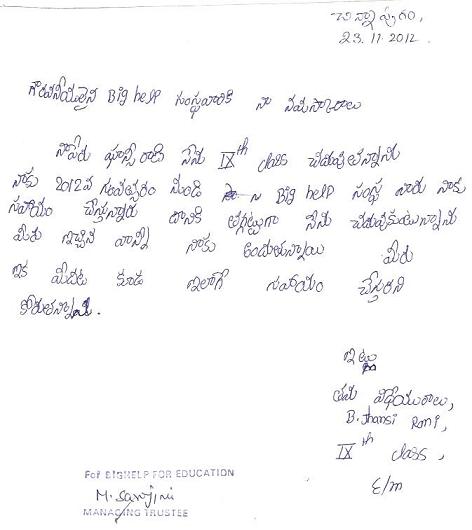 చిన్నాపురం,
23.11.2012.
గౌరవనీయులైన Big help సంస్థవారికి నా నమస్కారాలు
నాపేరు ఝాన్సీరాణి నేను IXth class చదువుతున్నాను
నాకు 2012వ సంవత్సరం నుండి Big help సంస్థ వారు నాకు
సహాయం చేస్తున్నారు దానికి తగ్గట్టుగా నేను చదువుకుంటున్నాను
మీరు ఇచ్చినవన్నీ నాకు అందుతున్నాయి మీరు
ఇక మీదట కూడా ఇలాగే సహాయం చేస్తారని
కోరుతున్నాను.
ఇట్లు
తమ విధేయురాలు,
B. Jhansi Rani,
IXth class,
E/m
For BIGHELP FOR EDUCATION
M. Sarojini
MANAGING TRUSTEE